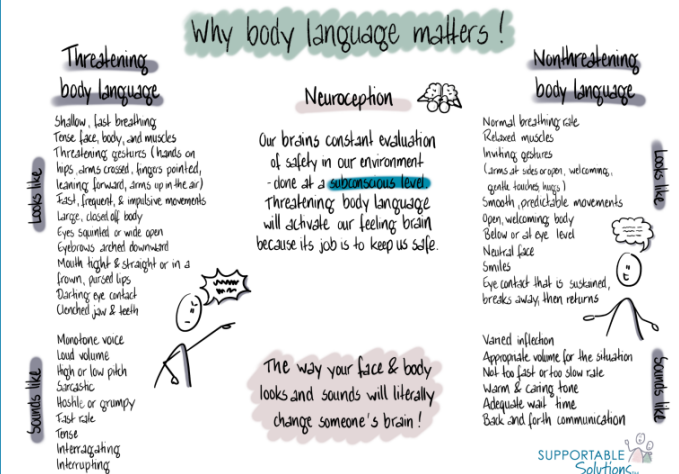 Why body language matters!
Threatening
body language
Looks like
Shallow, fast breathing
Tense face, body, and muscles
Threatening gestures (hands on
hips, arms crossed, fingers pointed,
leaning forward, arms up in the air)
Fast, frequent, & impulsive movements
Large, closed off body
Eyes squinted or wide open
Eyebrows arched downward
Mouth tight & straight or in a
frown, pursed lips
Darting eye contact
Clenched jaw & teeth
Sounds like
Monotone voice
Loud volume
High or low pitch
Sarcastic
Hostile or grumpy
Fast rate
Tense
Interragating
Interrupting
Neuroception
Our brains constant evaluation
of safety in our environment
- done at a subconscious level
Threatening body language
will activate our feeling brain
because its job is to keep us safe.
The way your face & body
looks and sounds will literally
change someone's brain!
Nonthreatening
body language
Looks like
Normal breathing rate
Relaxed muscles
Inviting gestures
(arms at sides or open, welcoming,
gentle touches, hugs)
Smooth, predictable movements
Open, welcoming body
Below or at eye level
Neutral face
Smiles
Eye contact that is sustained,
breaks away, then returns
Sounds like
Varied inflection
Appropriate volume for the situation
Not too fast or too slow rate
Warm & caring tone
Adequate wait time
Back and forth communication
SUPPORTABLE
Solutions